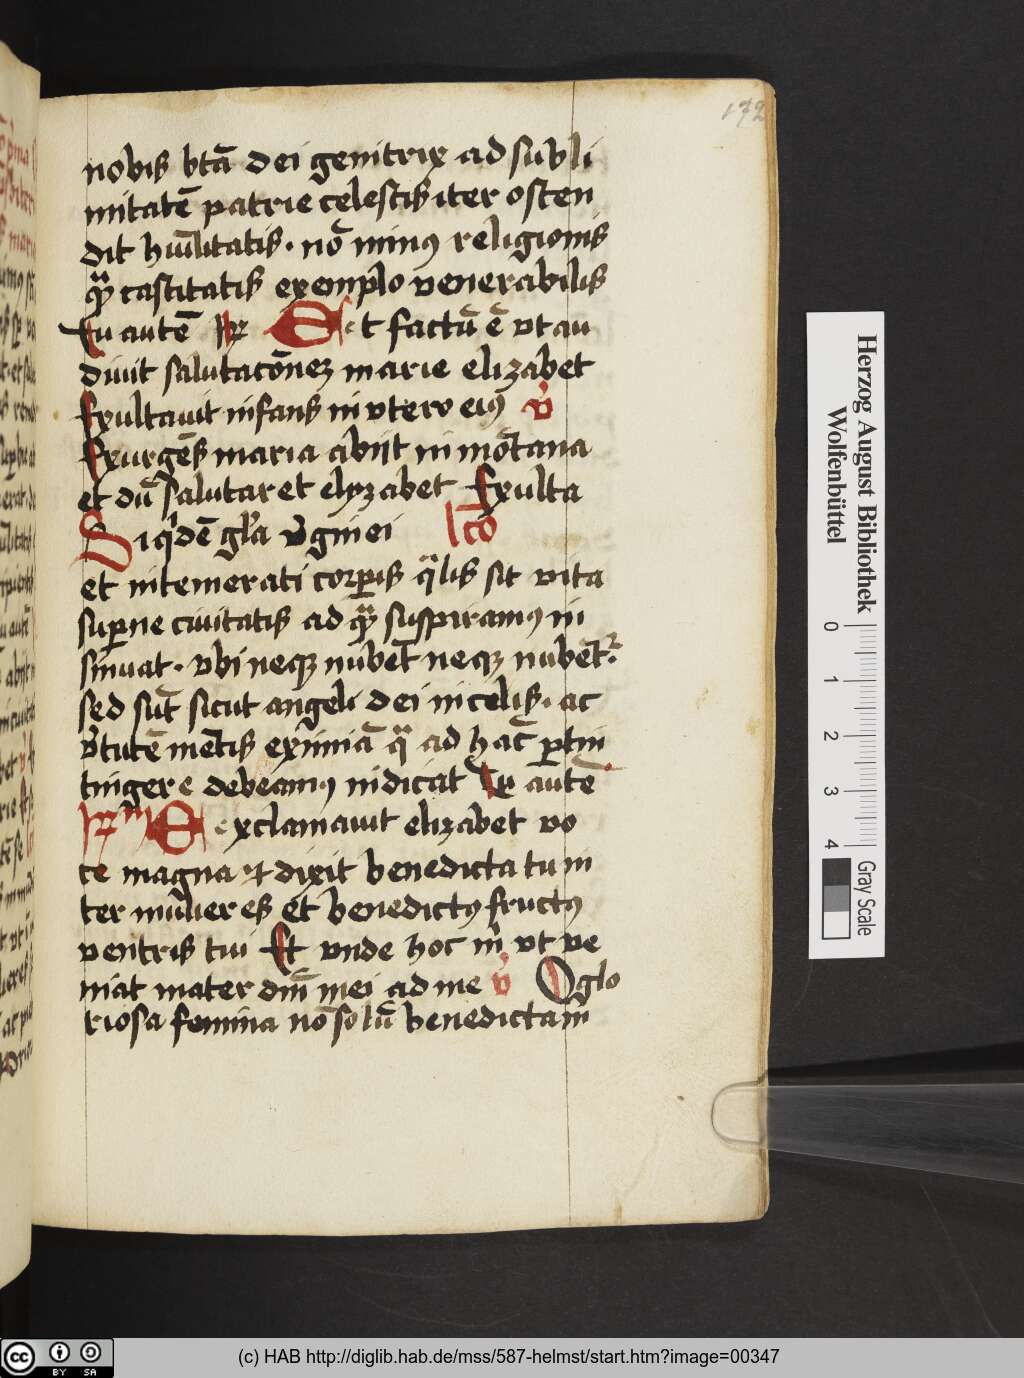 172
nobis btā dei genitrix ad subli
mitatē patrie celestis iter osten
dit hūilitatis. nō minꝰ religionis
qͣꝫ castitatis exemplo venerabilis
Tu autē R Et factū ē vt au
diuit salutacōnez marie elizabet
Exultauit infans in vtero eiꝰ v̉
Exurgēs maria abijt in mōtana
et dū salutaret elyzabet Exulta
Siqͥdē gl̉a v̉ginei lc̄o
et intemerati corꝑis qͣlis sit vita
suꝑne ciuitatis ad qͣꝫ suspiramꝰ in
sinuat. vbi neqꝫ nubēt neqꝫ nubēt᷑
sed sūt sicut angeli dei in celis. ac
v̉tutē mētis eximiā qͣ ad hāc ꝑtin
tingere debeamꝰ indicat Tu autē
et exclamauit elizabet vo
ce magna et dixit benedicta tu in
ter mulieres et benedictꝰ fructꝰ
ventris tui Et vnde hoc m̉ vt ve
niat mater dn̄i mei ad me v̉ O glo
riosa femina nō solū benedictam
Herzog August Bibliothek
Wolfenbüttel
0 1 2 3 4
Gray Scale
BY SA
(c) HAB http://diglib.hab.de/mss/587-helmst/start.htm?image=00347